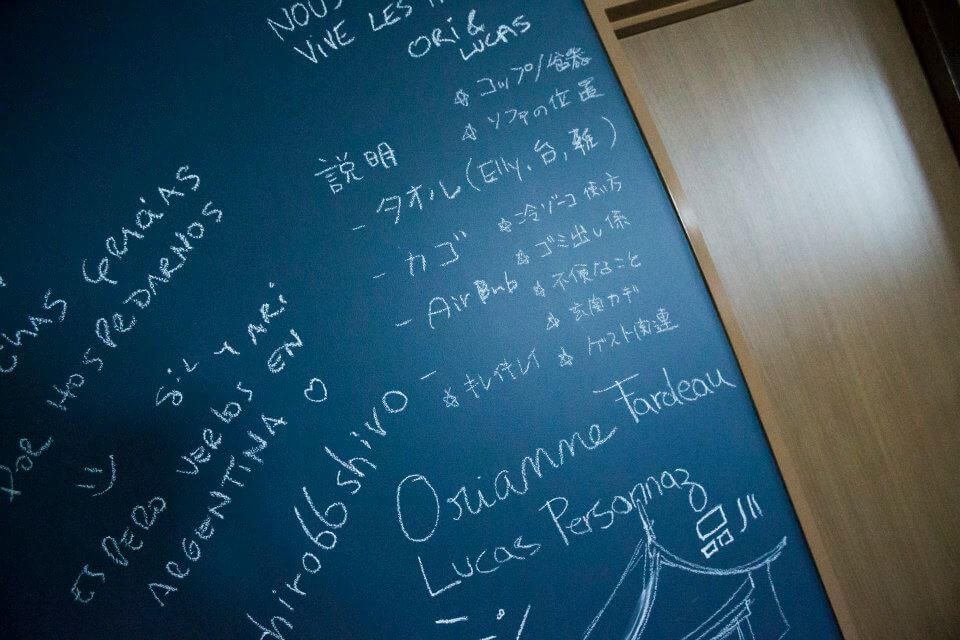 NOUS
VIVE LES
ORI &
LUCAS
☆ コップ/食器
☆ ソファの位置
説明
- タオル (Elly, 台, 雑)
- カゴ
☆ 冷ゾーコ 使い方
☆ ゴミ出し係
- Air Bnb
☆ 不便なこと
☆ 玄関カギ
- ☆ キレイキレイ
☆ ゲスト関連
CHAS GRACIAS
POR HOSPEDARNOS
SIL Y ARI
ESPERO VERLOS EN
ARGENTINA ♡
hiro66shiro
Orianne Tardeau
Lucas Personnaz
品川